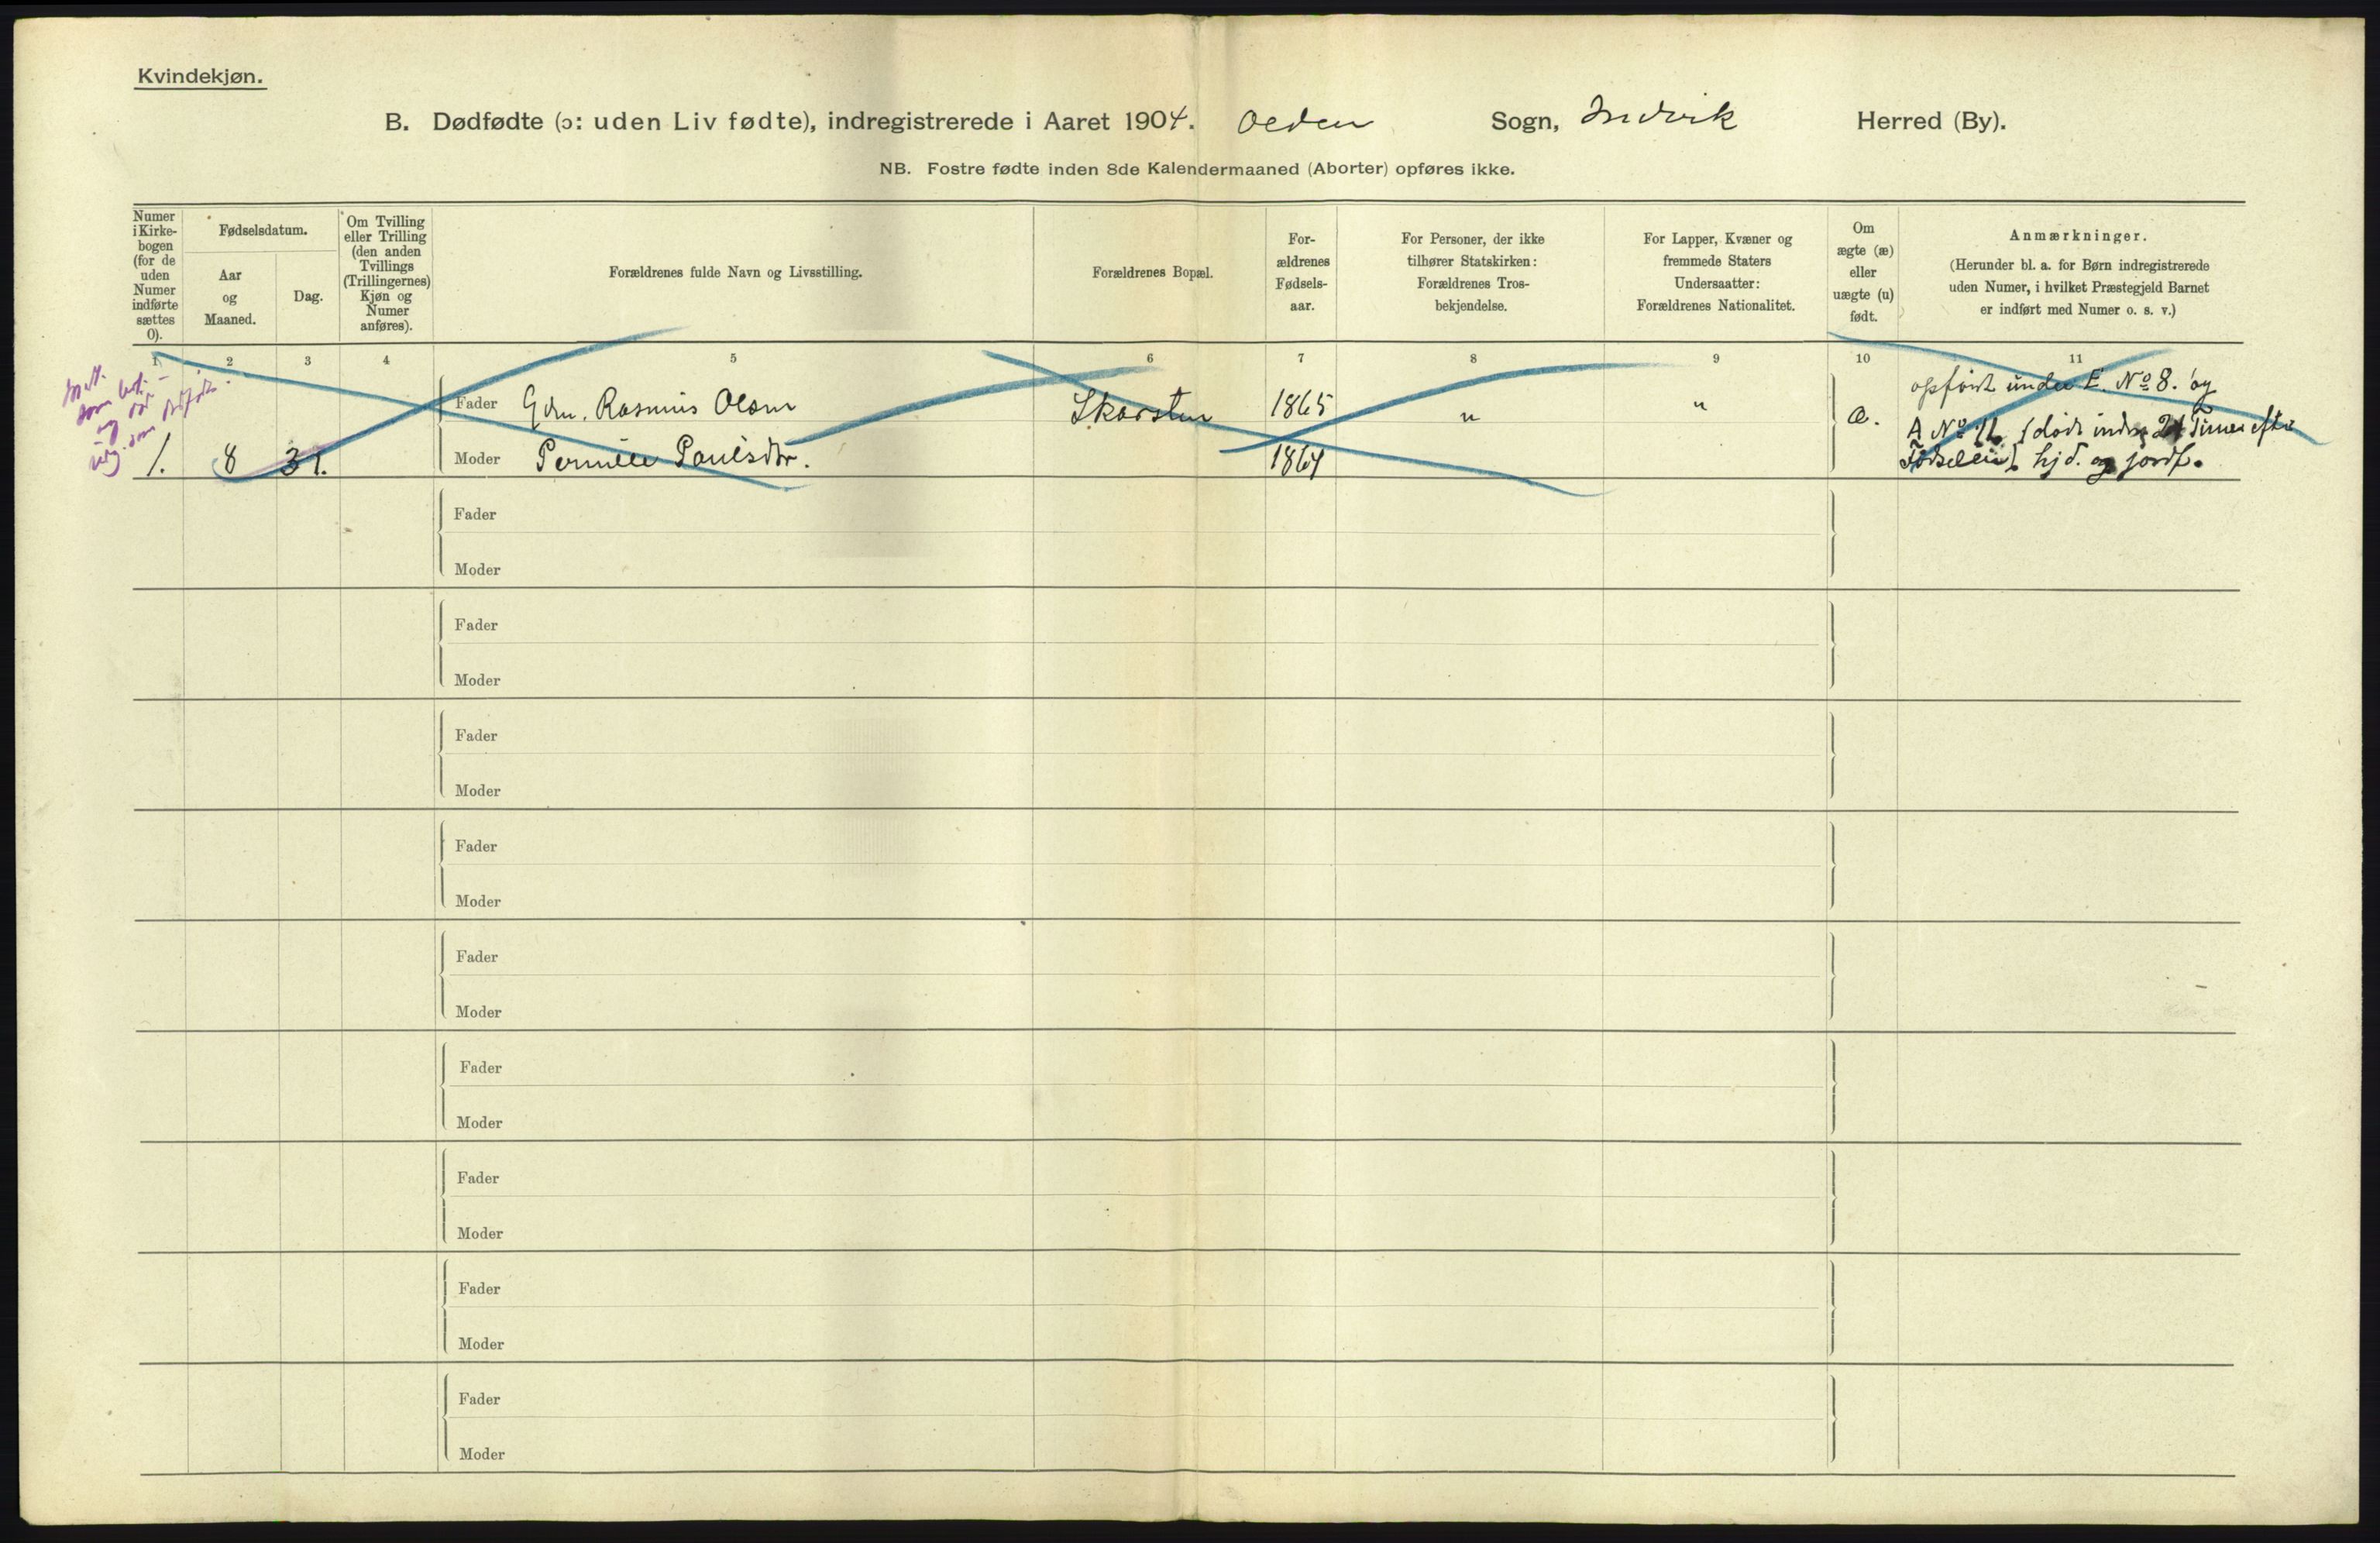 Kvindekjøn.
B. Dødfødte (ɔ: uden Liv fødte), indregistrerede i Aaret 1904. Olden Sogn, Indvik Herred (By).
NB. Fostre fødte inden 8de Kalendermaaned (Aborter) opføres ikke.
Numer i Kirkebogen (for de uden Numer indførte sættes 0).
Fødselsdatum.
Aar og Maaned.
Dag.
Om Tvilling eller Trilling (den anden Tvillings (Trillingernes) Kjøn og Numer anføres).
Forældrenes fulde Navn og Livsstilling.
Forældrenes Bopæl.
Forældrenes Fødselsaar.
For Personer, der ikke tilhører Statskirken: Forældrenes Trosbekjendelse.
For Lapper, Kvæner og fremmede Staters Undersaatter: Forældrenes Nationalitet.
Om ægte (æ) eller uægte (u) født.
Anmærkninger.
(Herunder bl. a. for Børn indregistrerede uden Numer, i hvilket Præstegjeld Barnet er indført med Numer o. s. v.)
1 2 3 4 5 6 7 8 9 10 11
Fader Gdm. Rasmus Olsen Skarsten 1865 " " æ. opført under E. No 8. og
1. 8 31. Moder Pernille Paulsdtr. 1864 A No 11. (død inden 24 Timer efter
Fødselen). hjd. og jordf.
Fader
Moder
Fader
Moder
Fader
Moder
Fader
Moder
Fader
Moder
Fader
Moder
Fader
Moder
Fader
Moder
Fader
Moder